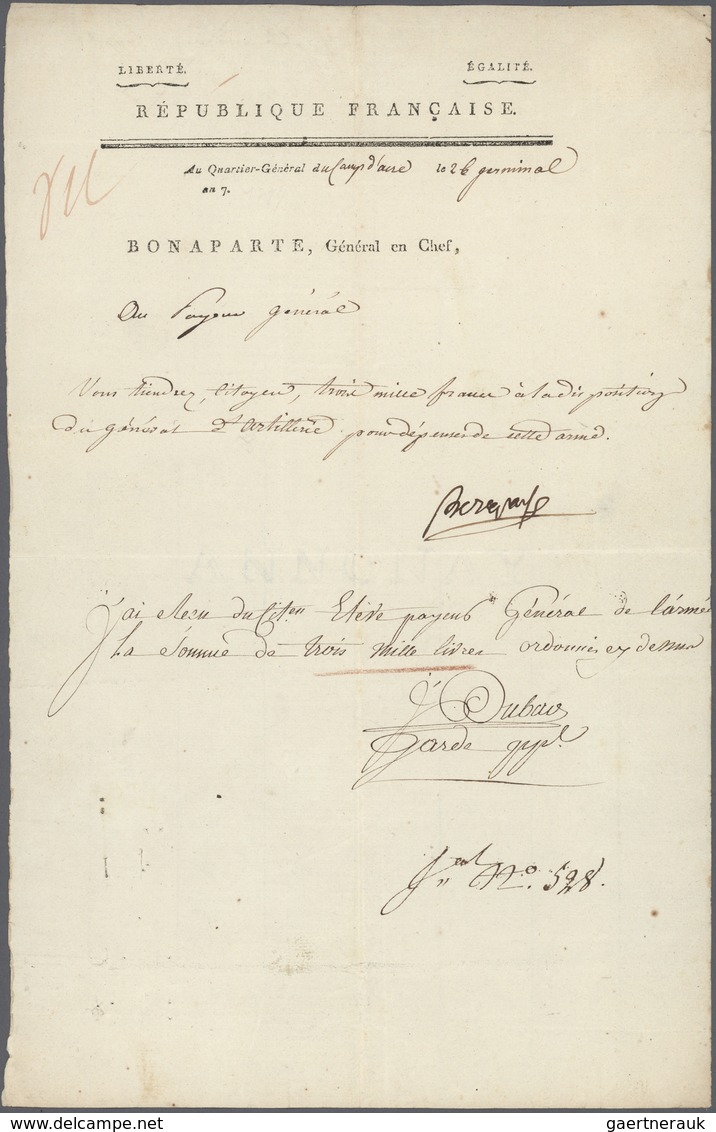 LIBERTÉ. ÉGALITÉ.
RÉPUBLIQUE FRANÇAISE.
Au Quartier-Général du Camp d'acre le 26 germinal
an 7.
BONAPARTE, Général en Chef,
Au Payeur général
Vous tiendrez, Citoyen, trois mille francs à la disposition
du général d'artillerie pour dépenses de cette arme.
Bonaparte
J'ai Reçu du Cit.en Estève payeur Général de l'armée
La Somme de trois mille livres ordonnée
J. Dubois
Garde
J.al N.o 528.
gaertnerauk